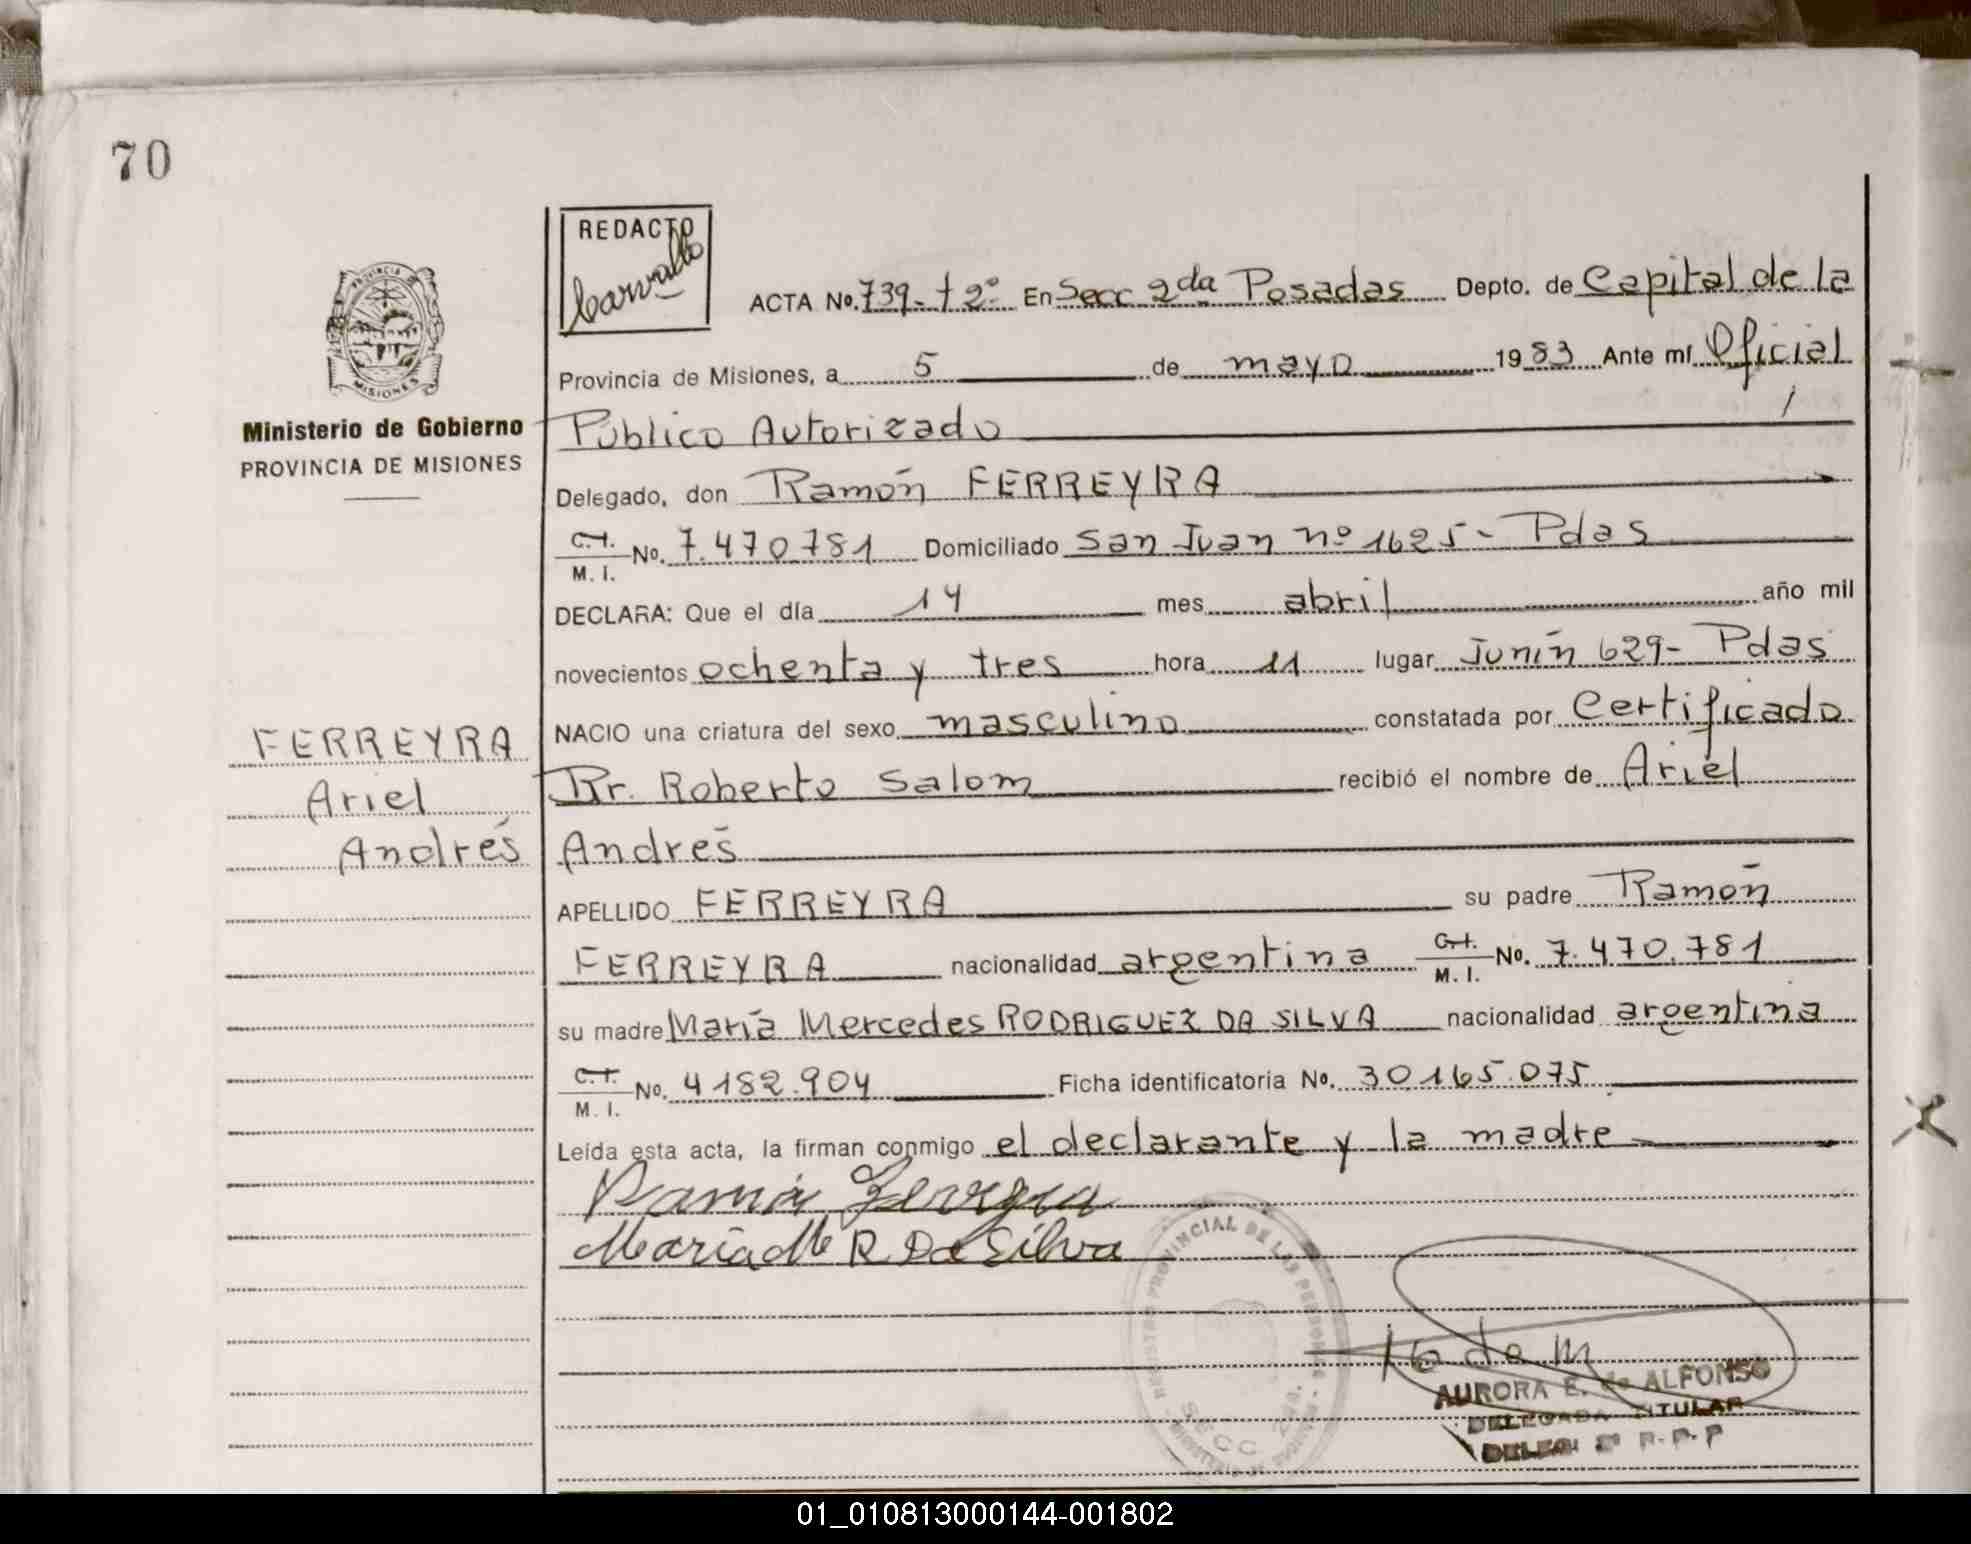 70
REDACTO
Carvallo
PROVINCIA
MISIONES
Ministerio de Gobierno
PROVINCIA DE MISIONES
ACTA No. 739-t 2º En Secc 2da Posadas Depto. de Capital de la
Provincia de Misiones, a 5 de mayo 1983 Ante mí Oficial
Público Autorizado
Delegado, don Ramón FERREYRA
C.I. M. I. No. 7.470.781 Domiciliado San Juan nº 1625- Pdas
DECLARA: Que el día 14 mes abril año mil
novecientos ochenta y tres hora 11 lugar Junín 629- Pdas
NACIO una criatura del sexo masculino constatada por Certificado
Dr. Roberto Salom recibió el nombre de Ariel
Andrés
FERREYRA
Ariel
Andrés
APELLIDO FERREYRA su padre Ramón
FERREYRA nacionalidad argentina C.I. M. I. No. 7.470.781
su madre María Mercedes RODRIGUEZ DA SILVA nacionalidad argentina
C.I. M. I. No. 4182.904 Ficha identificatoria No. 30.165.075
Leída esta acta, la firman conmigo el declarante y la madre
Ramón Ferreyra
María M R Da Silva
REGISTRO PROVINCIAL DE LAS PERSONAS
SECC 2da.
AURORA E. de ALFONSO
DELEGADA TITULAR
DELEG. 2º R-P-P
01_010813000144-001802